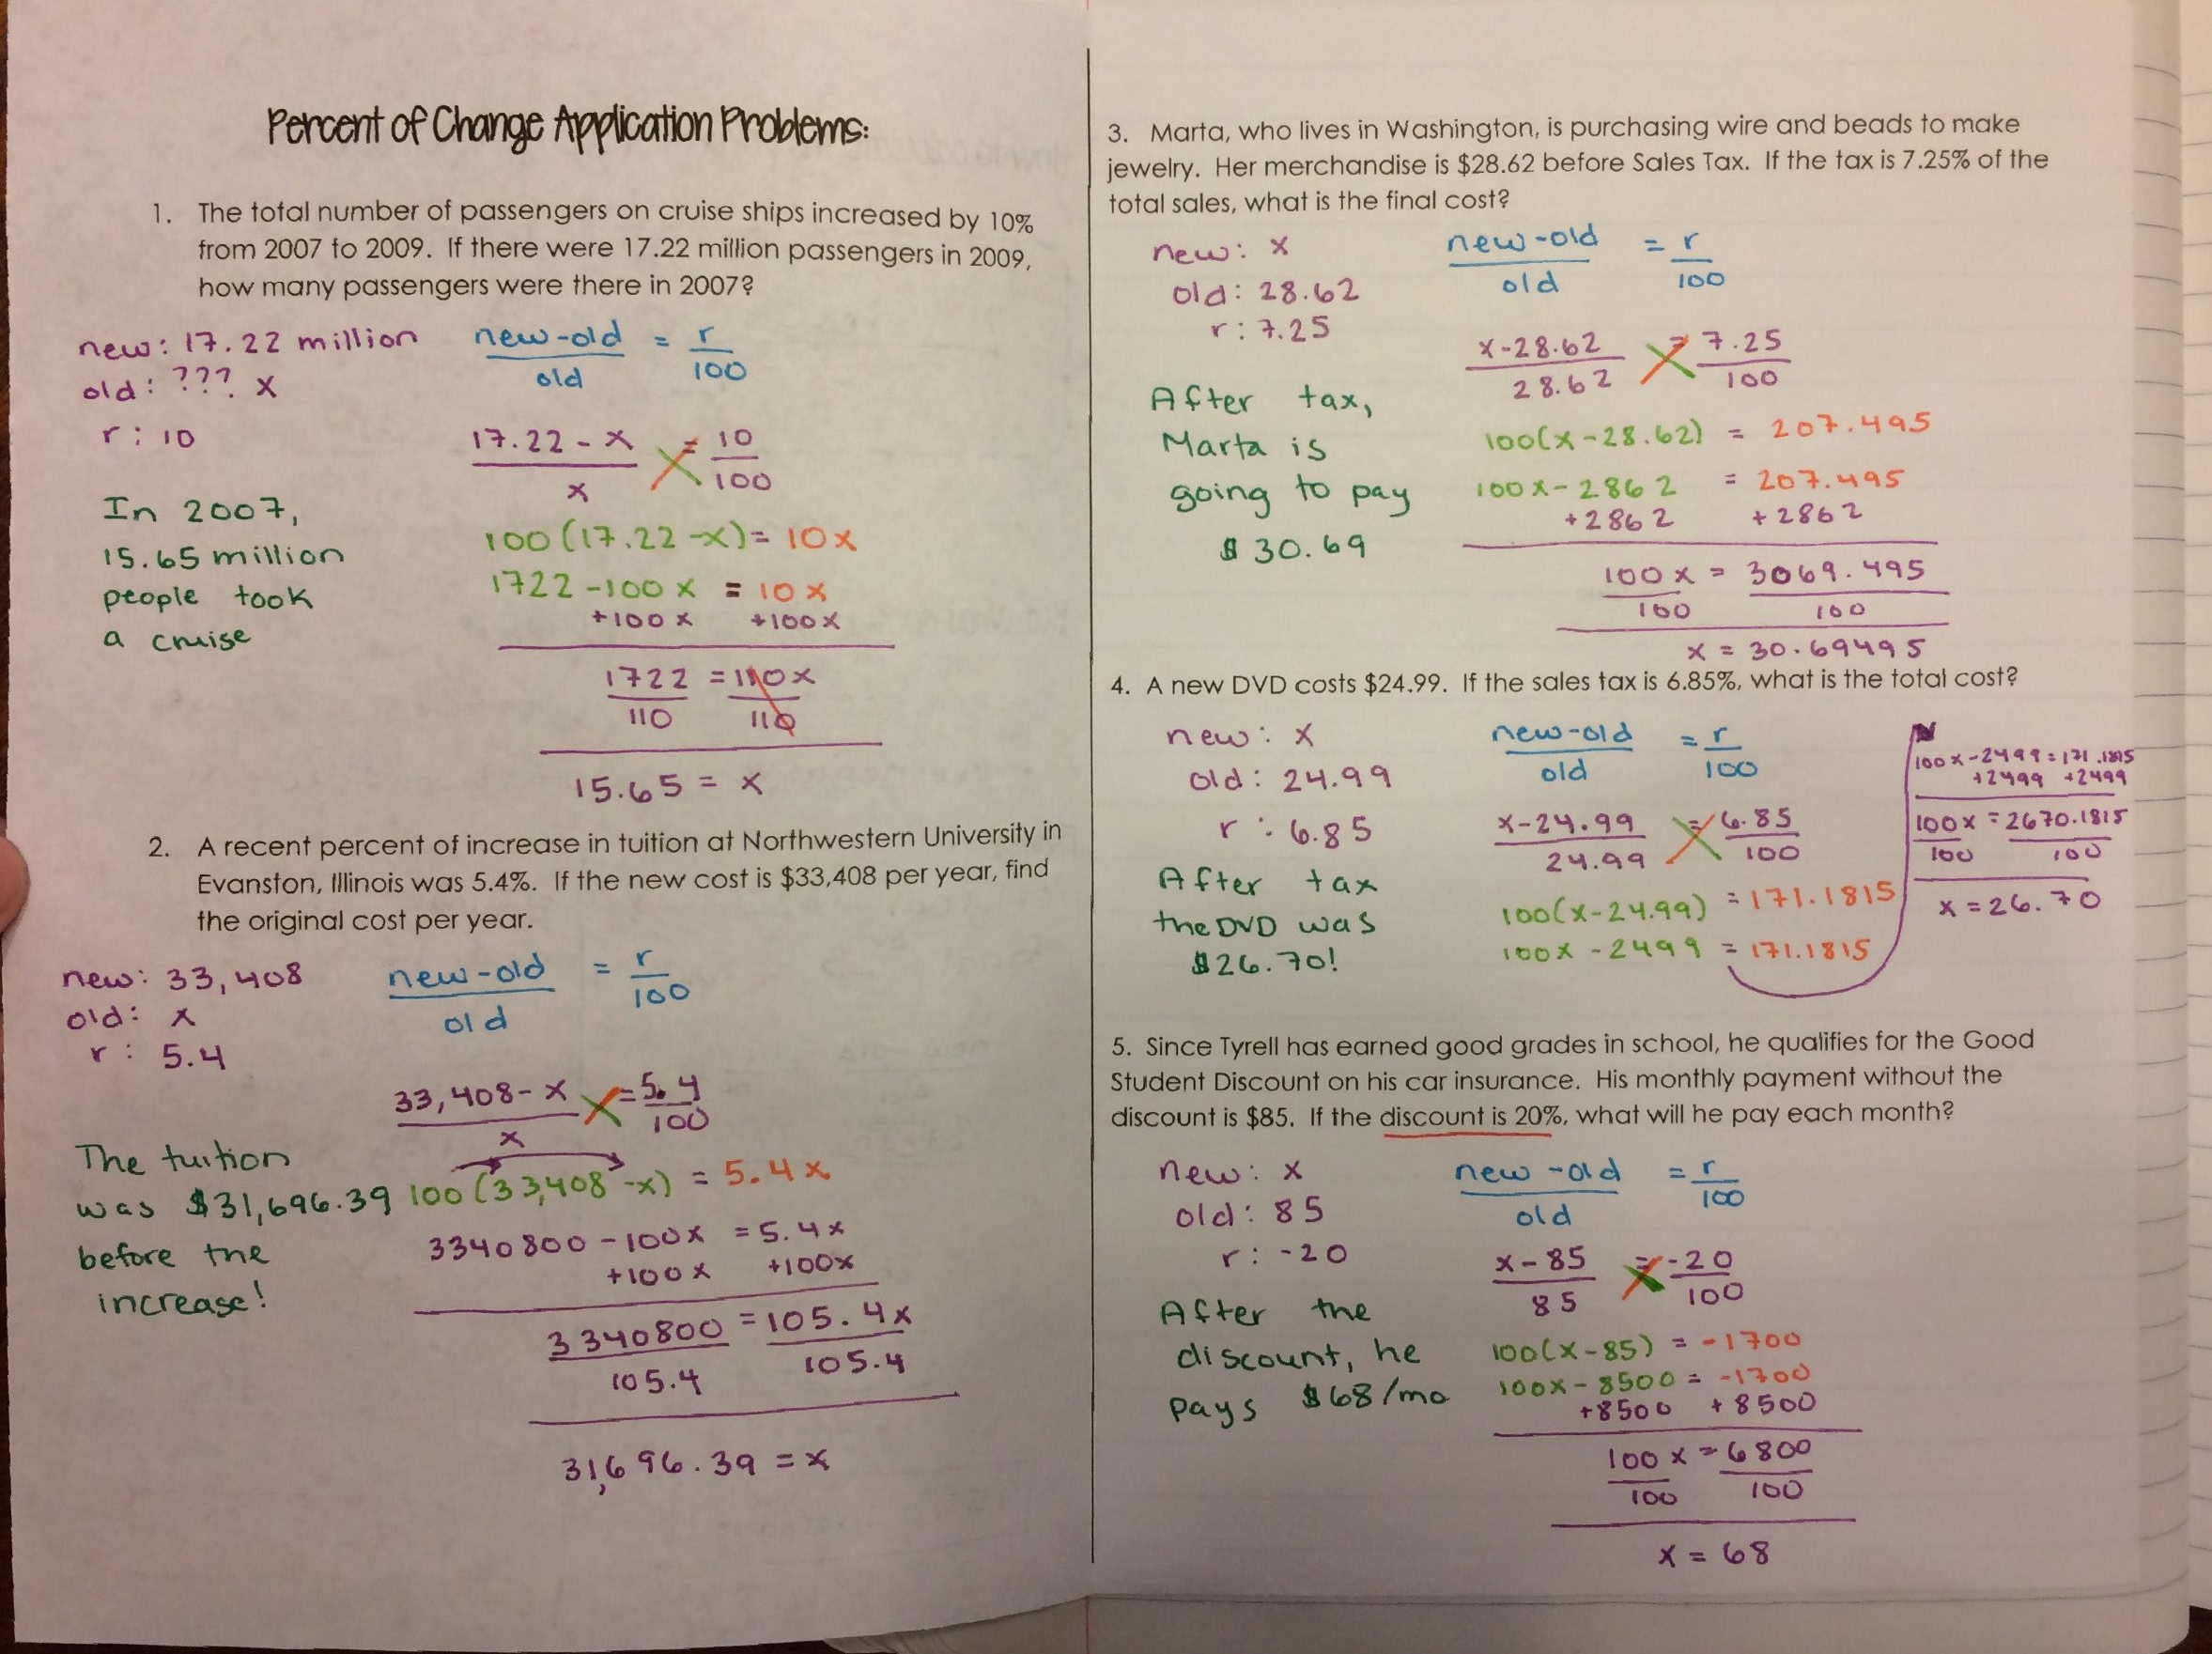 Percent of Change Application Problems:
1. The total number of passengers on cruise ships increased by 10%
from 2007 to 2009. If there were 17.22 million passengers in 2009,
how many passengers were there in 2007?
new: 17.22 million
old: ??? x
r: 10
new-old = r
old 100
17.22 - x = 10
x 100
100(17.22-x) = 10x
1722-100x = 10x
+100x +100x
1722 = 110x
110 110
15.65 = x
In 2007,
15.65 million
people took
a cruise
2. A recent percent of increase in tuition at Northwestern University in
Evanston, Illinois was 5.4%. If the new cost is $33,408 per year, find
the original cost per year.
new: 33,408
old: x
r: 5.4
new-old = r
old 100
33,408-x = 5.4
x 100
100(33,408-x) = 5.4x
3340800-100x = 5.4x
+100x +100x
3340800 = 105.4x
105.4 105.4
31,696.39 = x
The tuition
was $31,696.39
before the
increase!
3. Marta, who lives in Washington, is purchasing wire and beads to make
jewelry. Her merchandise is $28.62 before Sales Tax. If the tax is 7.25% of the
total sales, what is the final cost?
new: x
old: 28.62
r: 7.25
new-old = r
old 100
x-28.62 = 7.25
28.62 100
100(x-28.62) = 207.495
100x-2862 = 207.495
+2862 +2862
100x = 3069.495
100 100
x = 30.69495
After tax,
Marta is
going to pay
$30.69
4. A new DVD costs $24.99. If the sales tax is 6.85%, what is the total cost?
new: x
old: 24.99
r: 6.85
new-old = r
old 100
x-24.99 = 6.85
24.99 100
100(x-24.99) = 171.1815
100x-2499 = 171.1815
100x-2499=171.1815
+2499 +2499
100x = 2670.1815
100 100
x = 26.70
After tax
the DVD was
$26.70!
5. Since Tyrell has earned good grades in school, he qualifies for the Good
Student Discount on his car insurance. His monthly payment without the
discount is $85. If the discount is 20%, what will he pay each month?
new: x
old: 85
r: -20
new-old = r
old 100
x-85 = -20
85 100
100(x-85) = -1700
100x-8500 = -1700
+8500 +8500
100x = 6800
100 100
x = 68
After the
discount, he
pays $68/mo